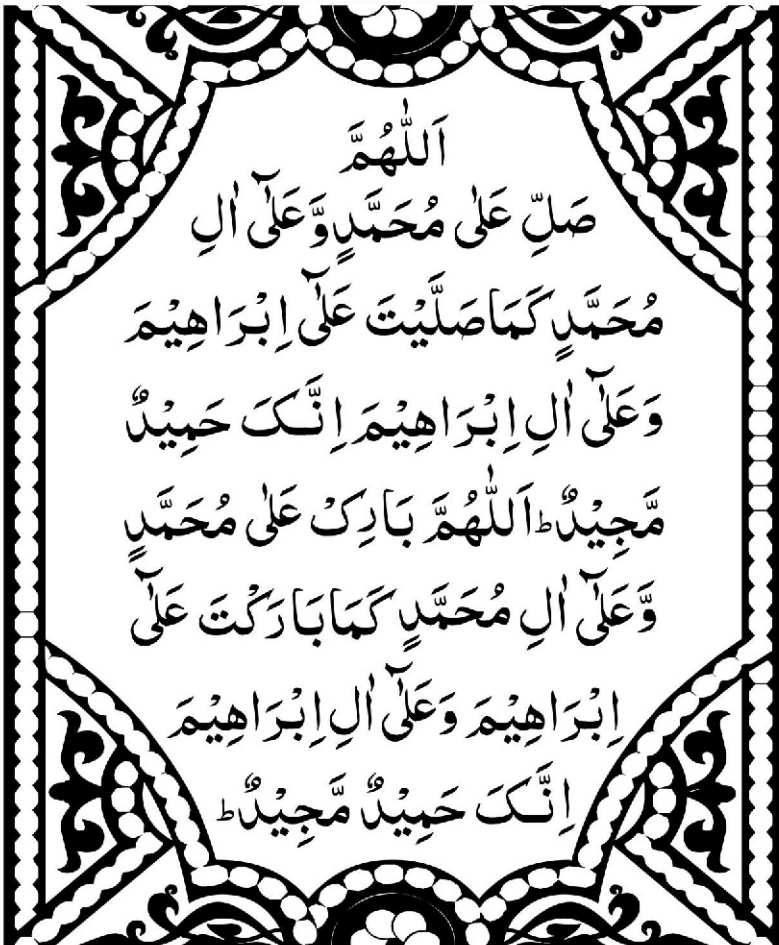 اَللّٰهُمَّ
صَلِّ عَلٰی مُحَمَّدٍ وَّعَلٰٓی اٰلِ
مُحَمَّدٍ کَمَا صَلَّیْتَ عَلٰٓی اِبْرَاهِیْمَ
وَعَلٰٓی اٰلِ اِبْرَاهِیْمَ اِنَّکَ حَمِیْدٌ
مَّجِیْدٌ ؕ اَللّٰهُمَّ بَارِکْ عَلٰی مُحَمَّدٍ
وَّعَلٰٓی اٰلِ مُحَمَّدٍ کَمَا بَارَکْتَ عَلٰٓی
اِبْرَاهِیْمَ وَعَلٰٓی اٰلِ اِبْرَاهِیْمَ
اِنَّکَ حَمِیْدٌ مَّجِیْدٌ ؕ